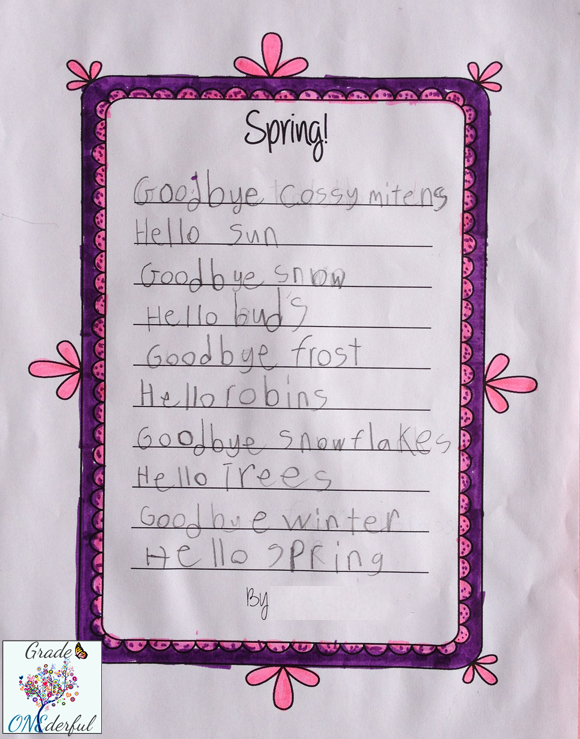 Spring!
Goodbye cossy mitens
Hello sun
Goodbye snow
Hello bud's
Goodbye frost
Hello robins
Goodbye snowflakes
Hello Trees
Goodbue winter
Hello spring
By
Grade
ONEderful